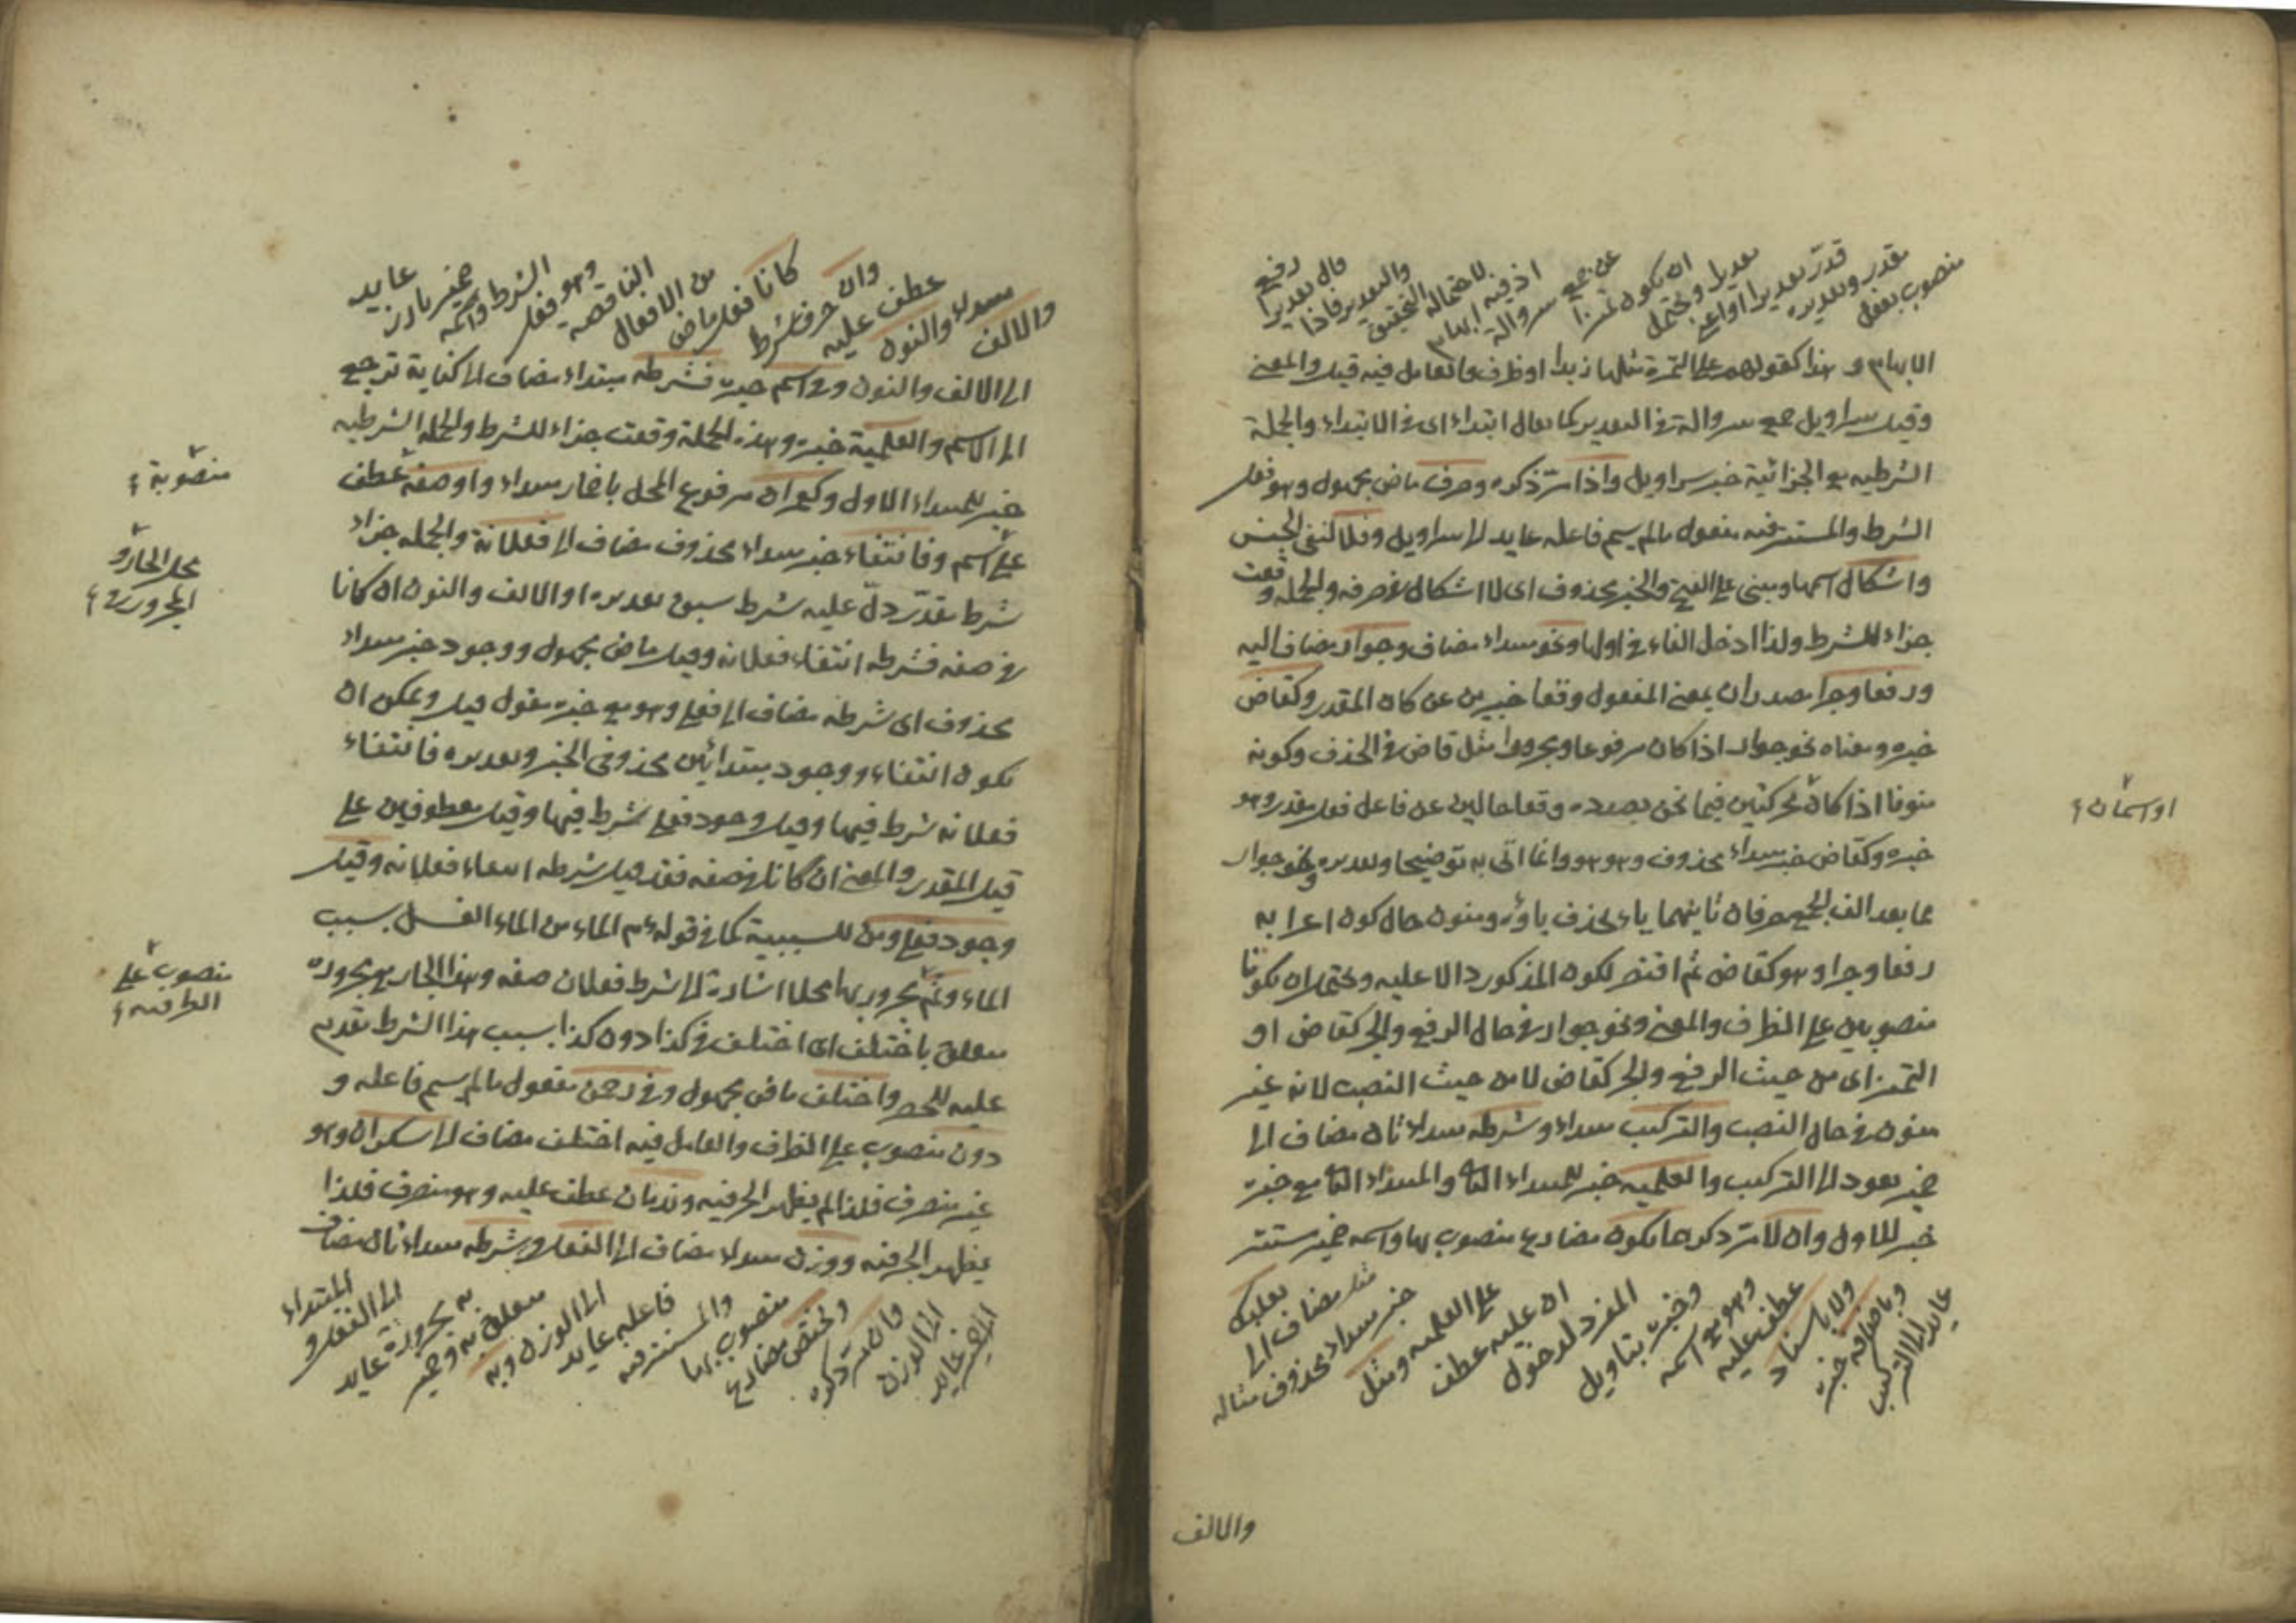 منصوب بفعل
مقدر وتقديره
قدر تقديرا او اعني
تقديرا ويحتمل
ان يكون تمييزا
عن جمع سروالة
اذ فيه ابهام
لاحتماله التحقيق
والتقدير فاذا
قال تقديرا
رفع
الابهام و هذا كقولهم على التمرة مثلها زبدا او ظرف والعامل فيه قيل والمعنى
وقيل سراويل جمع سروالة في التقدير كما يقال ابتداء اى في الابتداء والجملة
الشرطية مع الجزائية خبر سراويل واذا مر ذكره وصرف ماض مجهول وهو فعل
الشرط والمستتر فيه مفعول ما لم يسم فاعله عايد الى سراويل وفلا لنفى الجنس
واشكال اسمها ومبنى على الفتح والخبر محذوف اى لا اشكال في صرفه والجملة وقعت
جزاء للشرط ولذا ادخل الفاء في اولها ونحو مبتداء مضاف وجوار مضاف اليه
ورفعا وجرا مصدران بمعنى المفعول وقعا خبرين عن كان المقدر وكقاض
خبره ومعناه نحو جوار اذا كان مرفوعا ومجرورا مثل قاض في الحذف وكونه
منونا اذا كان محركتين فيما نحن بصدده وقعا حالين عن فاعل فعل مقدر وهو
خبره وكقاض خبر مبتداء محذوف وهو هو وانما اتى به توضيحا وتقديره ونحو جوار
مما بعد الف الجمع حرفان ثانيهما ياء يحذف ياؤه وينون حال كون اعرابه
رفعا وجرا وهو كقاض ثم اقتصر لكون المذكور دالا عليه ويحتمل ان يكونا
منصوبين على الظرف والمعنى ونحو جوار في حال الرفع والجر كقاض او
التمييز اى من حيث الرفع والجر كقاض لا من حيث النصب لانه غير
منون في حال النصب والتركيب مبتداء وشرطه مبتداء ثان مضاف الى
ضمير يعود الى التركيب والعلمية خبر للمبتداء الثانى والمبتداء الثانى مع خبره
خبر للاول وان لا مر ذكرهما يكون مضارع منصوب بها واسمه ضمير مستتر
عايد الى التركيب
وباضافة خبره
ولا باسناد
عطف عليه
وهو مع اسمه
وخبره بتاويل
المفرد لدخول
ان عليه عطف
على العلمية ومثل
خبر مبتداء محذوف مثاله
مثل مضاف الى
بعلبك
او اسمان
والالف
والالف
والنون مبتداء
عطف عليه
وان حرف شرط
كانا فعل ماض
من الافعال
الناقصة
وهو فعل
الشرط واسمه
ضمير بارز
عايد
الى الالف والنون وفى اسم خبره فشرطه مبتداء مضاف الى كناية ترجع
الى الاسم والعلمية خبره وهذه الجملة وقعت جزاء للشرط والجملة الشرطية
خبر للمبتداء الاول وكعمران مرفوع المحل باضمار مبتداء واو صفة عطف
على اسم وفانتفاء خبر مبتداء محذوف مضاف الى فعلانة والجملة جزاء
شرط مقدر دل عليه شرط سبق تقديره او الالف والنون ان كانا
في صفة فشرطه انتفاء فعلانة وقيل ماض مجهول ووجود خبر مبتداء
محذوف اى شرطه مضاف الى فعلى وهو مع خبره مقول قيل ويمكن ان
يكون انتفاء ووجود مبتدائين محذوفى الخبر وتقديره فانتفاء
فعلانة شرط فيها وقيل وجود فعلى شرط فيها وقيل معطوفين على
قيل المقدر والمعنى ان كانا في صفة فقد قيل شرطه انتفاء فعلانة وقيل
وجود فعلى ومن للسببية كما في قوله عم الماء من الماء الغسل بسبب
الماء وثم مجرور بها محلا اشارة الى شرط فعلان صفة وهذا الجار مع مجروره
متعلق باختلف اى اختلف في كذا دون كذا بسبب هذا الشرط تقدم
عليه للحصر واختلف ماض مجهول وفى رحمن مفعول ما لم يسم فاعله و
دون منصوب على الظرف والعامل فيه اختلف مضاف الى سكران وهو
غير منصرف فلذا لم يظهر الجر فيه وندمان عطف عليه وهو منصرف فلذا
يظهر الجر فيه ووزن مبتداء مضاف الى الفعل وشرطه مبتداء ثان مضاف
الضمير عايد
الى الوزن
وان مر ذكره
ويختص مضارع
منصوب بها
والمستتر فيه
فاعله عايد
الى الوزن وبه
متعلق به وضمير
به مجرورة عايد
الى الفعل و
المبتداء
منصوبة
محل الجار و
المجرور
منصوب على
الظرفية